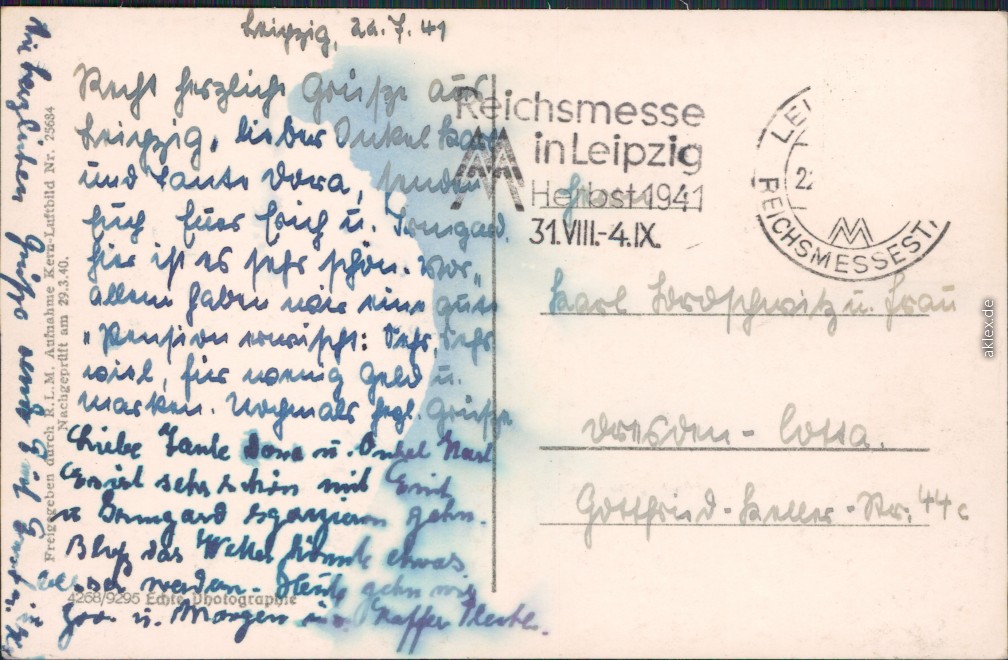 Leipzig, 20.7.41
Recht herzliche Grüße aus
Leipzig, lieber Onkel Karl
und Tante Dora, senden
Euch Euer Erich u. Irmgard.
Hier ist es sehr schön. Vor
allem haben wir eine gute
"Pension" erwischt: Sehr, sehr
viel, für wenig Geld u.
Marken. Nochmals hrzl. Grüße
Liebe Tante Dora u. Onkel Karl
Es ist sehr schön mit Erich
u Irmgard spazieren gehn.
Bloß das Wetter könnte etwas
besser werden. Heute gehn wir
Zoo u. Morgen ins Kaffee
herzlichen Grüße
Freigegeben durch R.L.M. Aufnahme Kern-Luftbild Nr. 25684
Nachgeprüft am 29.3.40.
4268/9295 Echte Photographie
Reichsmesse
in Leipzig
Herbst 1941
31.VIII.-4.IX.
LEI
22
REICHSMESSEST.
Karl u. Frau
Dresden - Cotta.
Gottfried-Keller-Str. 44c
aklex.de